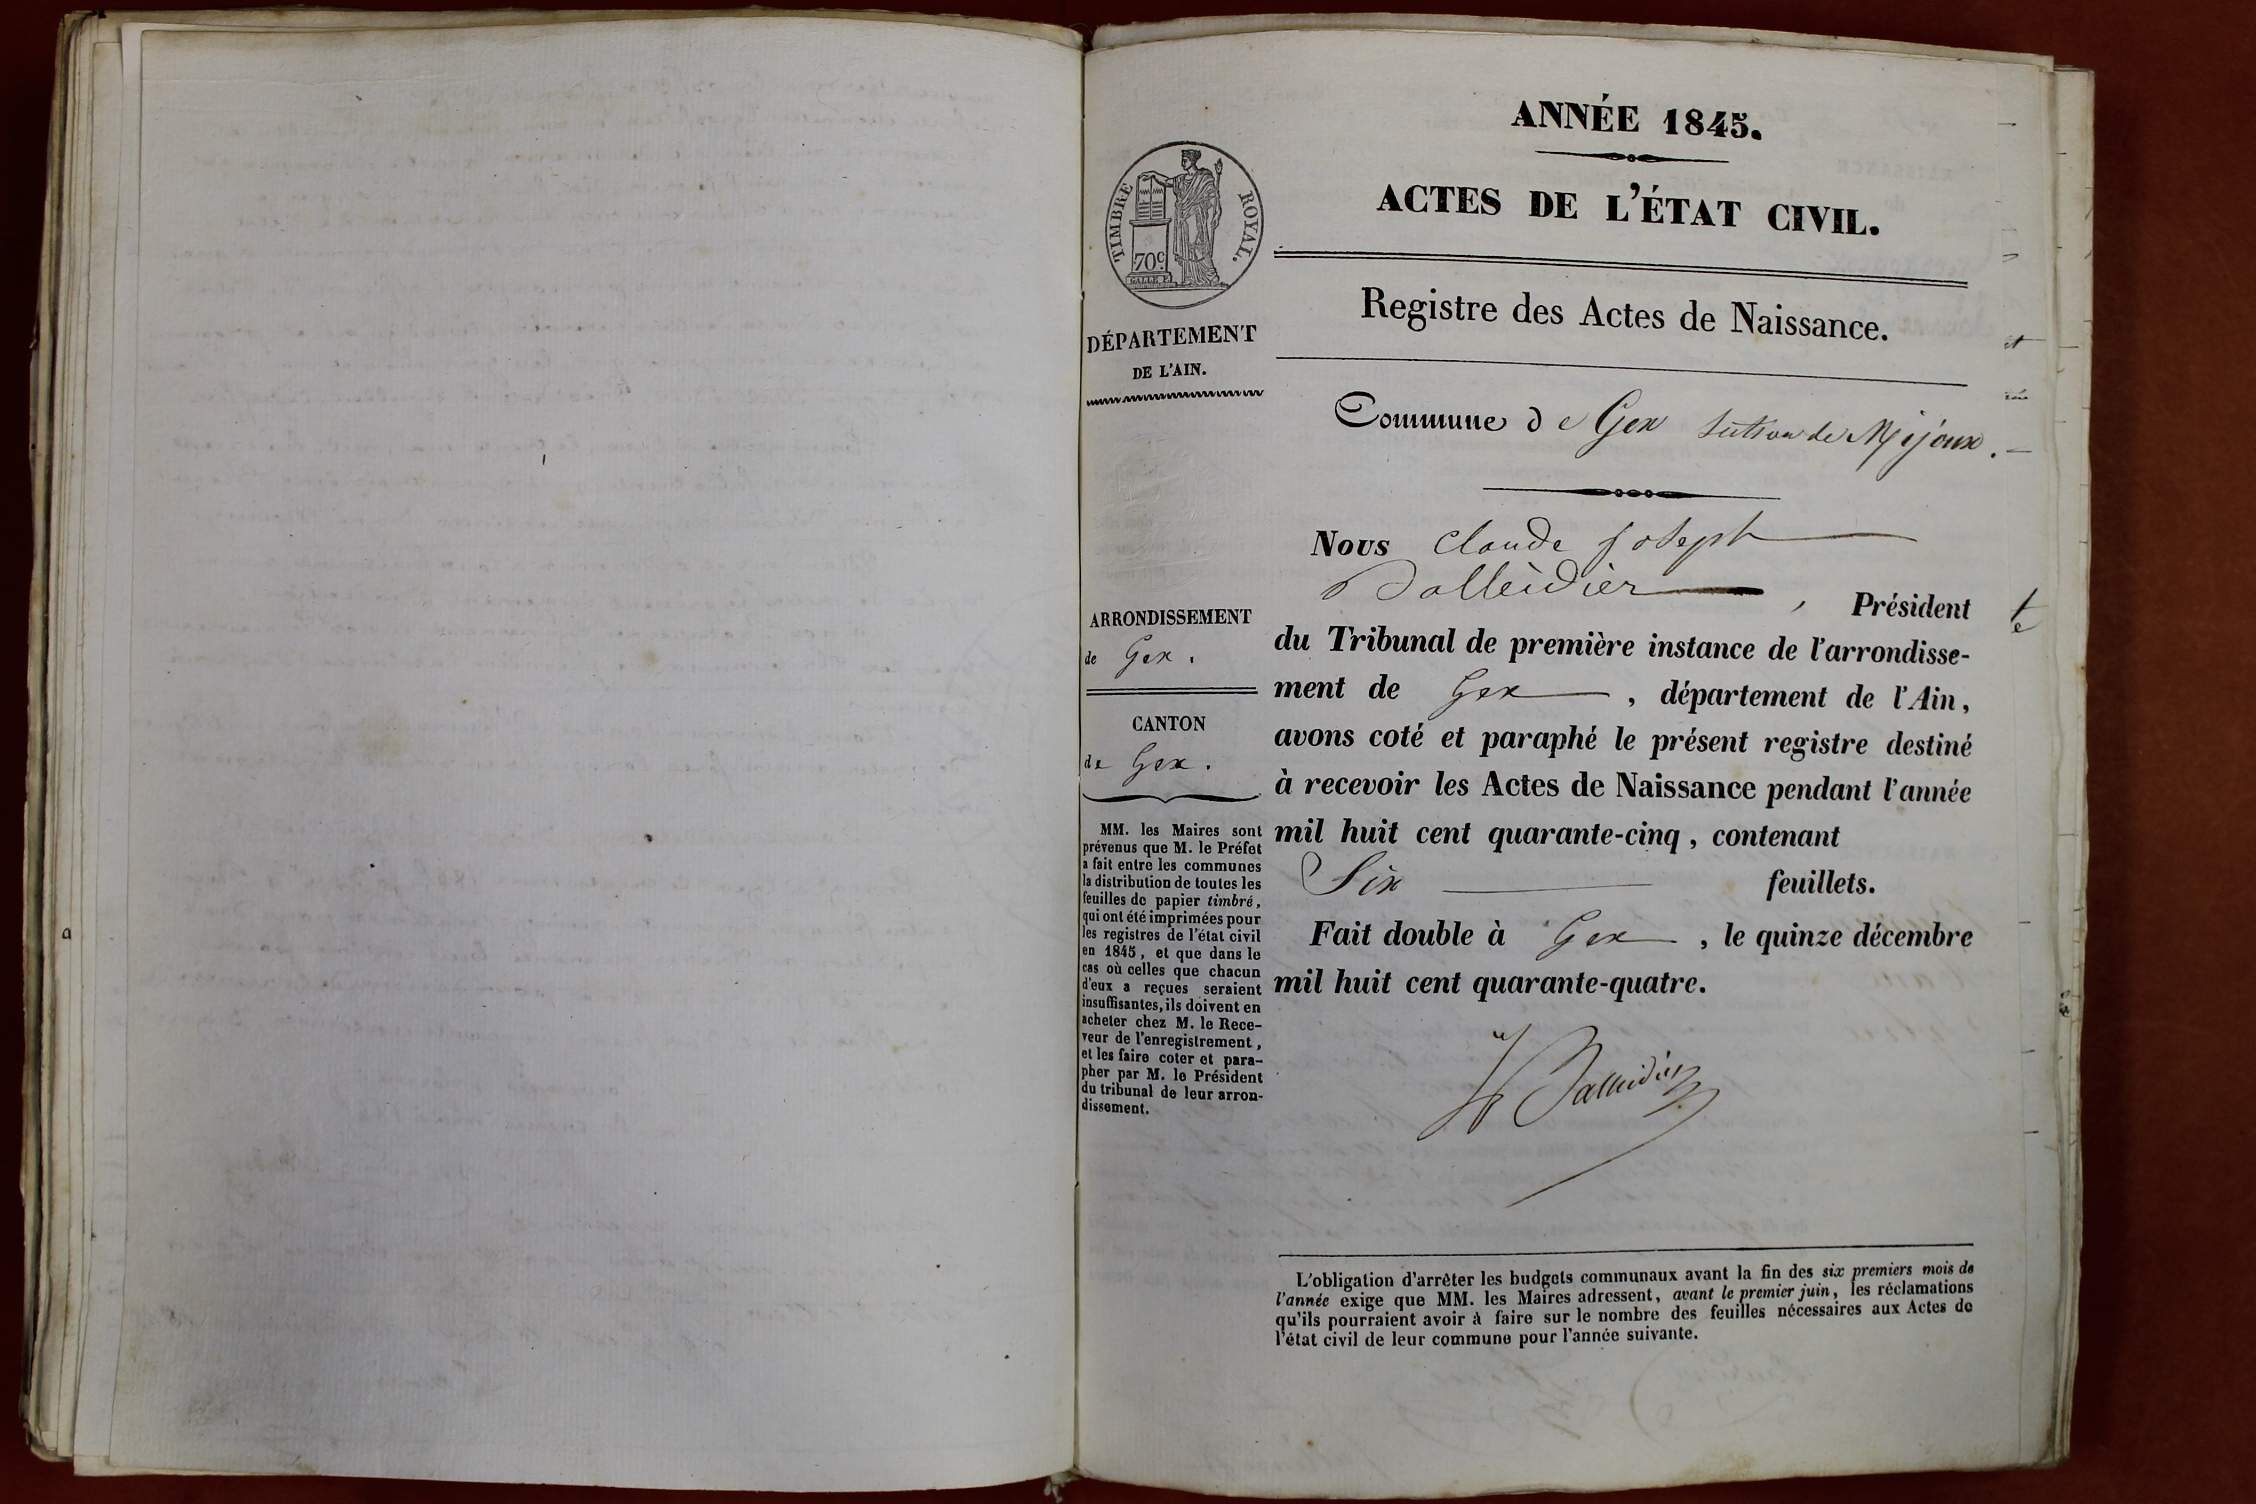 ANNÉE 1845.
ACTES DE L'ÉTAT CIVIL.
TIMBRE ROYAL.
70c
Registre des Actes de Naissance.
DÉPARTEMENT
DE L'AIN.
Commune de Gex section de Mijoux.
Nous Claude Joseph
Balleidier, Président
du Tribunal de première instance de l'arrondisse-
ment de Gex, département de l'Ain,
avons coté et paraphé le présent registre destiné
à recevoir les Actes de Naissance pendant l'année
mil huit cent quarante-cinq, contenant
Six feuillets.
Fait double à Gex, le quinze décembre
mil huit cent quarante-quatre.
Balleidier
ARRONDISSEMENT
de Gex.
CANTON
de Gex.
MM. les Maires sont
prévenus que M. le Préfet
a fait entre les communes
la distribution de toutes les
feuilles de papier timbré,
qui ont été imprimées pour
les registres de l'état civil
en 1845, et que dans le
cas où celles que chacun
d'eux a reçues seraient
insuffisantes, ils doivent en
acheter chez M. le Rece-
veur de l'enregistrement,
et les faire coter et para-
pher par M. le Président
du tribunal de leur arron-
dissement.
L'obligation d'arrêter les budgets communaux avant la fin des six premiers mois de
l'année exige que MM. les Maires adressent, avant le premier juin, les réclamations
qu'ils pourraient avoir à faire sur le nombre des feuilles nécessaires aux Actes de
l'état civil de leur commune pour l'année suivante.